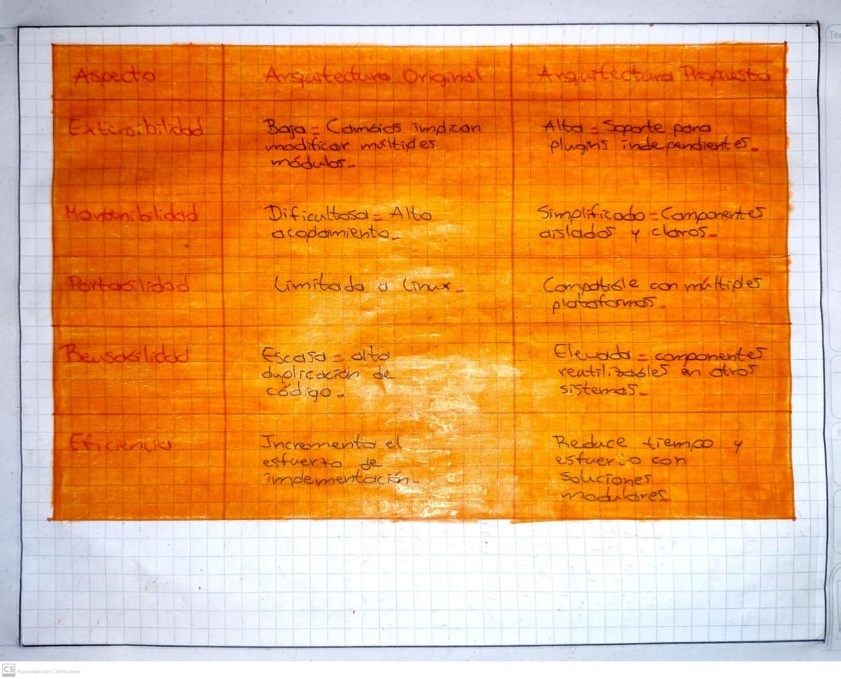 Aspecto
Arquitectura Original
Arquitectura Propuesta
Extensibilidad
Baja = Cambios implican
modificar múltiples
módulos.
Alta = Soporte para
plugins independientes.
Mantenibilidad
Dificultosa = Alto
acoplamiento.
Simplificado = Componentes
aislados y claros.
Portabilidad
Limitada a Linux.
Compatible con múltiples
plataformas.
Reusabilidad
Escasa = alta
duplicación de
código.
Elevada = componentes
reutilizables en otros
sistemas.
Eficiencia
Incrementa el
esfuerzo de
implementación.
Reduce tiempo y
esfuerzo con
soluciones
modulares
CS
Escaneado con CamScanner